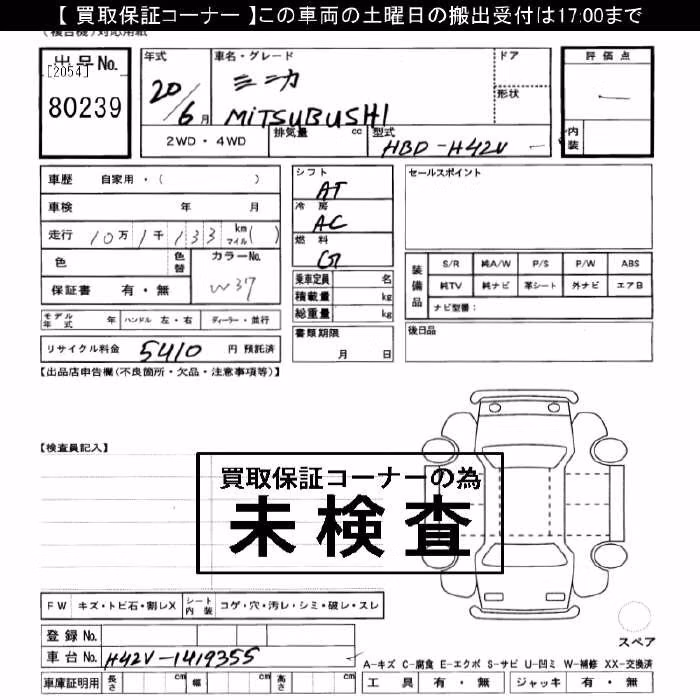 【 買取保証コーナー 】この車両の土曜日の搬出受付は17:00まで
出品No.
[2054]
80239
年式
20/6月
車名・グレード
ミニカ
MiTSUBUSHI
ドア
形状
評価点
内装
2WD・4WD
排気量 cc
型式
HBD-H42V
車歴 自家用・( )
車検 年 月
走行 10万1千133 km マイル( )
色
色替
カラーNo.
W37
保証書 有・無
シフト
AT
冷房
AC
燃料
G
乗車定員 名
積載量 kg
総重量 kg
書類期限
月 日
セールスポイント
装備品
S/R 純A/W P/S P/W ABS
純TV 純ナビ 革シート 外ナビ エアB
ナビ型番:
後日品
モデル年式 年 ハンドル 左・右 ディーラー・並行
リサイクル料金 5410 円 預託済
【出品店申告欄(不良箇所・欠品・注意事項等)】
【検査員記入】
買取保証コーナーの為
未検査
FW キズ・トビ石・割レX シート内装 コゲ・穴・汚レ・シミ・破レ・スレ
スペア
登録No.
車台No. H42V-1419355
車庫証明用 長さ cm 幅 cm 高さ cm
A-キズ C-腐食 E-エクボ S-サビ U-凹ミ W-補修 XX-交換済
工具 有・無 ジャッキ 有・無